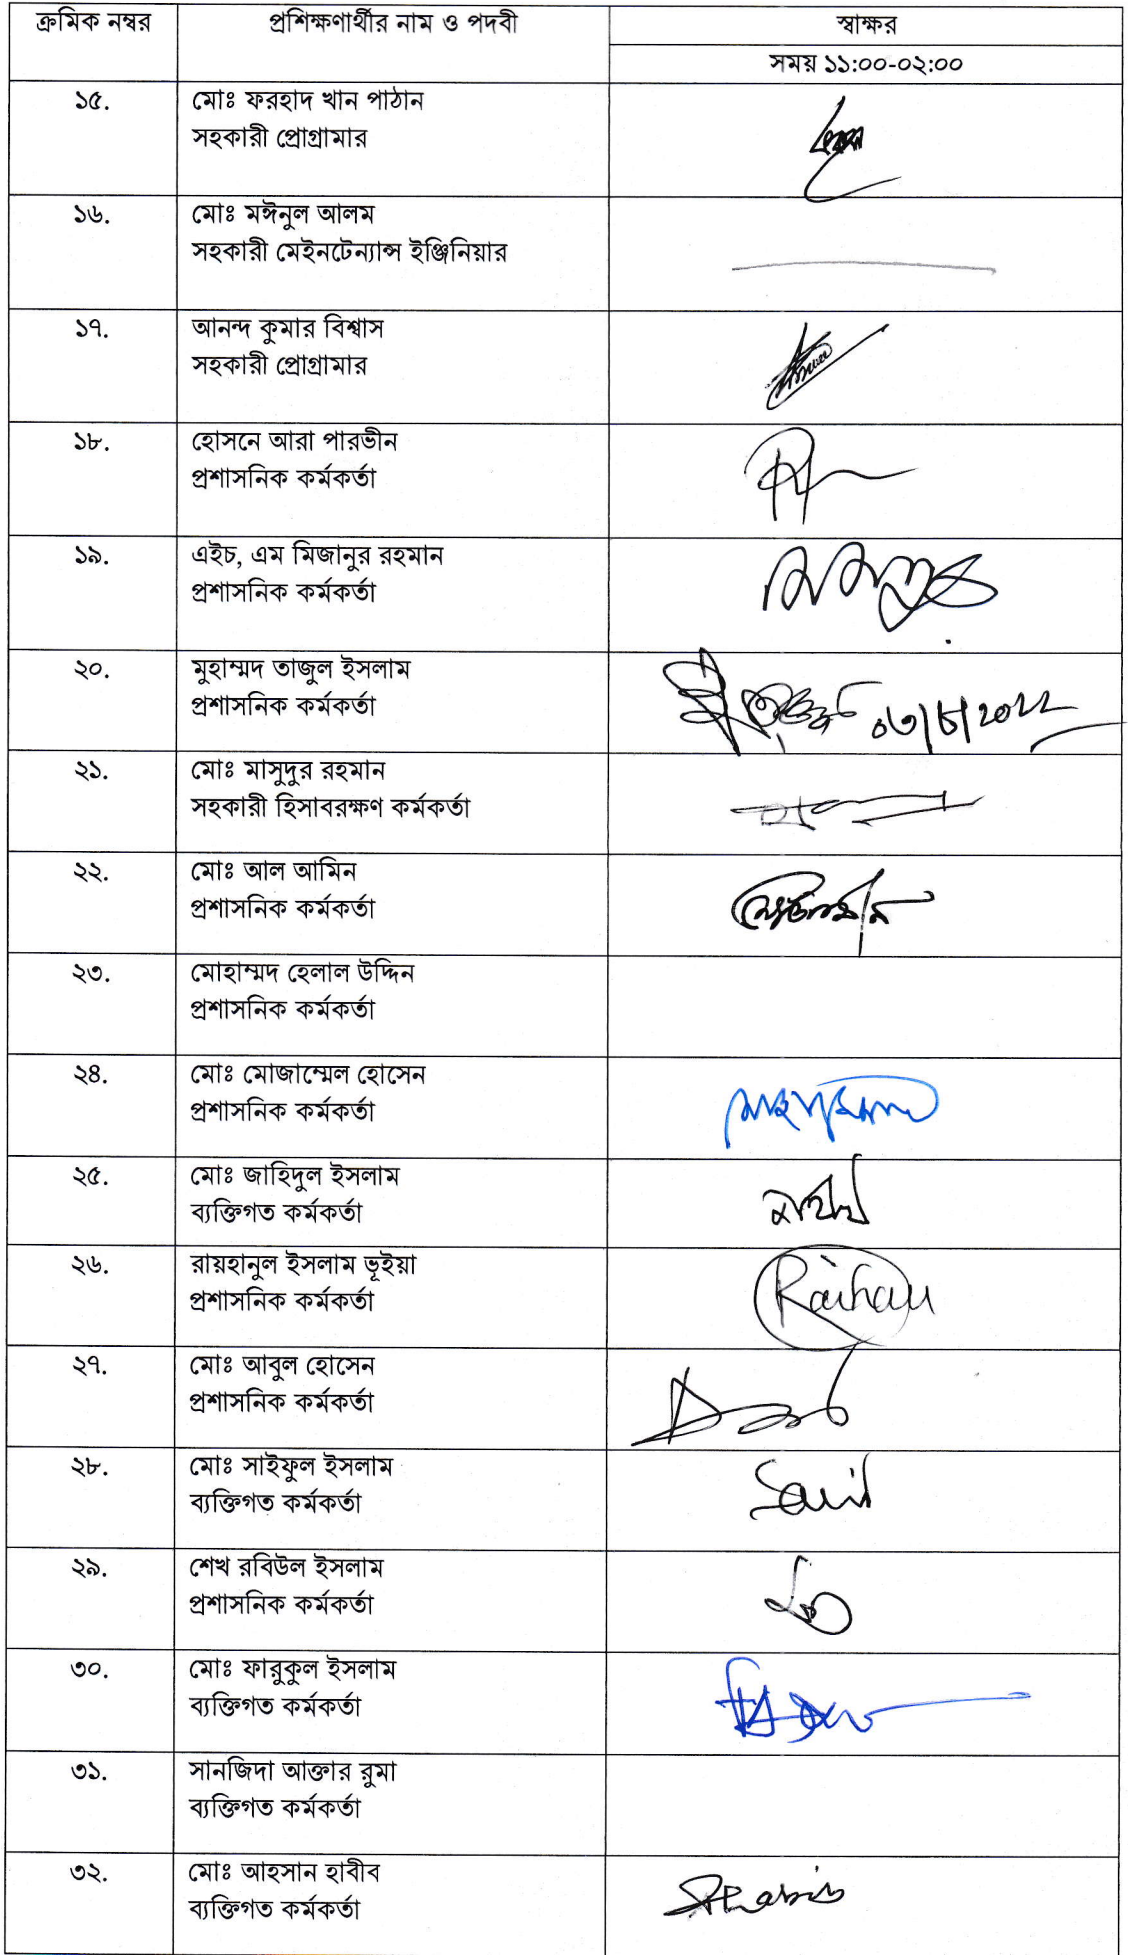 ক্রমিক নম্বর প্রশিক্ষণার্থীর নাম ও পদবী স্বাক্ষর
সময় ১১:০০-০২:০০
১৫. মোঃ ফরহাদ খান পাঠান
সহকারী প্রোগ্রামার
১৬. মোঃ মঈনুল আলম
সহকারী মেইনটেন্যান্স ইঞ্জিনিয়ার
১৭. আনন্দ কুমার বিশ্বাস
সহকারী প্রোগ্রামার
১৮. হোসনে আরা পারভীন
প্রশাসনিক কর্মকর্তা
১৯. এইচ, এম মিজানুর রহমান
প্রশাসনিক কর্মকর্তা
২০. মুহাম্মদ তাজুল ইসলাম
প্রশাসনিক কর্মকর্তা ০৩/৮/২০২২
২১. মোঃ মাসুদুর রহমান
সহকারী হিসাবরক্ষণ কর্মকর্তা
২২. মোঃ আল আমিন
প্রশাসনিক কর্মকর্তা
২৩. মোহাম্মদ হেলাল উদ্দিন
প্রশাসনিক কর্মকর্তা
২৪. মোঃ মোজাম্মেল হোসেন
প্রশাসনিক কর্মকর্তা
২৫. মোঃ জাহিদুল ইসলাম
ব্যক্তিগত কর্মকর্তা
২৬. রায়হানুল ইসলাম ভূইয়া
প্রশাসনিক কর্মকর্তা Raihan
২৭. মোঃ আবুল হোসেন
প্রশাসনিক কর্মকর্তা
২৮. মোঃ সাইফুল ইসলাম
ব্যক্তিগত কর্মকর্তা
২৯. শেখ রবিউল ইসলাম
প্রশাসনিক কর্মকর্তা
৩০. মোঃ ফারুকুল ইসলাম
ব্যক্তিগত কর্মকর্তা
৩১. সানজিদা আক্তার রুমা
ব্যক্তিগত কর্মকর্তা
৩২. মোঃ আহসান হাবীব
ব্যক্তিগত কর্মকর্তা